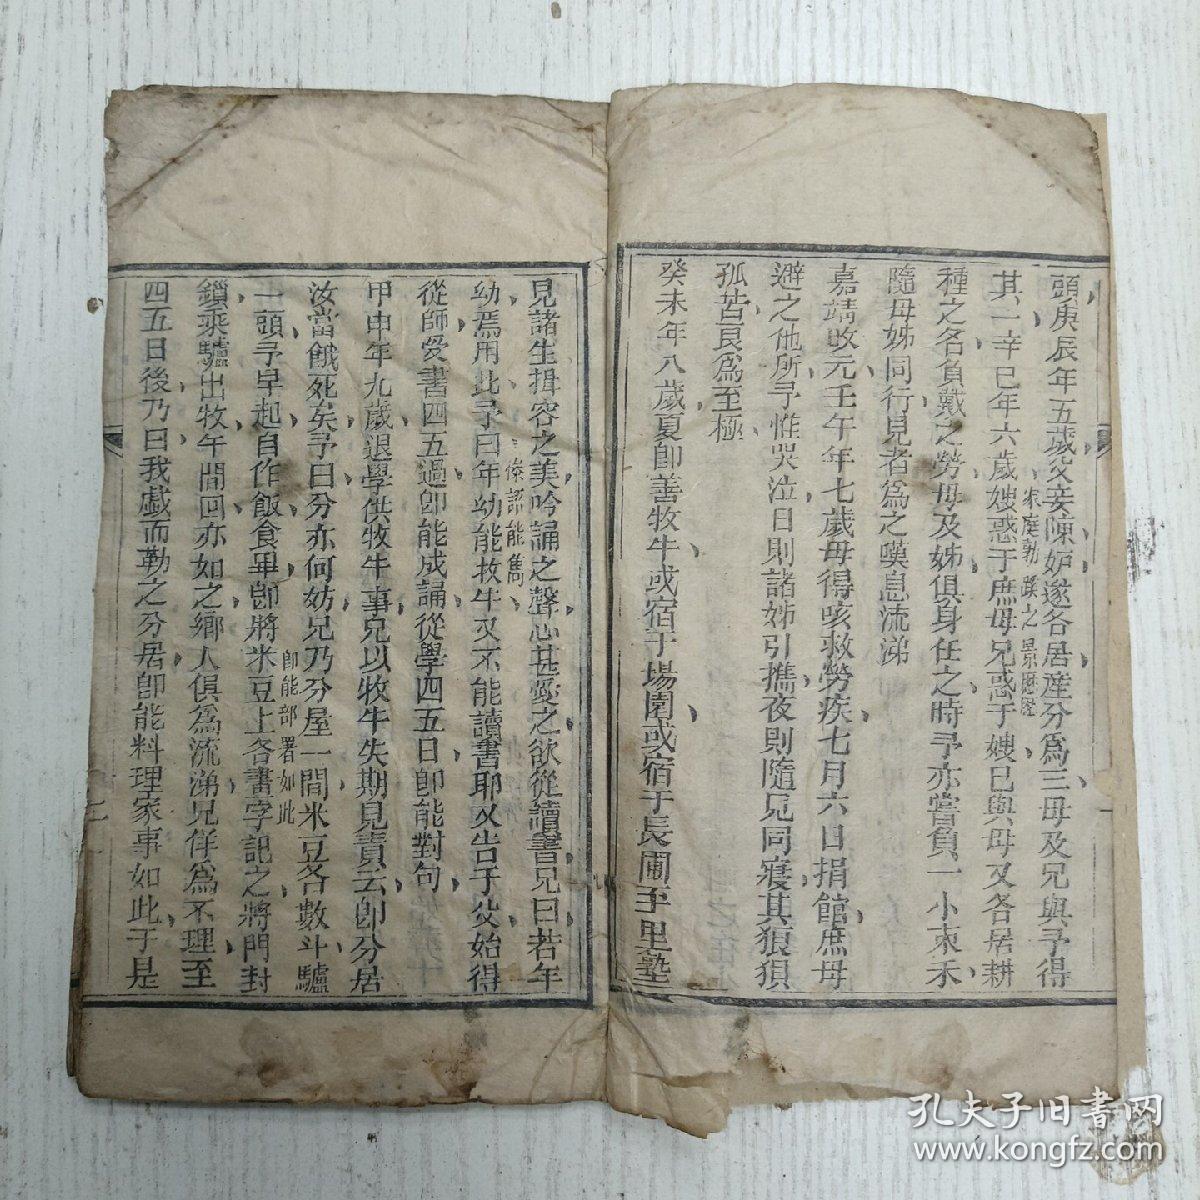 頭庚辰年五歲父妾陳妒遂各居産分為三母及兄與予得
其一辛巳年六歲嫂惑于庶母兄惑于嫂已與母又各居耕
家庭勃蹊之景
種之名負戴之勞母及姊俱身任之時予亦嘗負一小束禾
隨母姊同行見者為之嘆息流涕
嘉靖改元壬午年七歲母得咳救勞疾七月六日捐館庶母
避之他所予惟哭泣日則諸姊引攜夜則隨兄同寢其狼狽
孤苦良為至極
癸未年八歲夏即善牧牛或宿于場園或宿于長圃至里塾
見諸生揖容之美吟誦之聲心甚愛之欲從讀書兄曰若年
幼焉用此予曰年幼能牧牛又不能讀書耶又告于父始得
傢認能雋
從師受書四五過即能成誦從學四五日即能對句
甲申年九歲退學供牧牛事兄以牧牛失期見責云即分居
汝當餓死矣予曰分亦何妨兄乃分屋一間米豆各數斗驢
一頭予早起自作飯食畢即將米豆上各畫字記之將門封
即能部署如此
鎖乘驢出牧午間回亦如之鄉人俱為流涕兄佯為不理至
四五日後乃曰我戲而勒之分居即能料理家事如此于是
孔夫子旧书网
www.kongfz.com